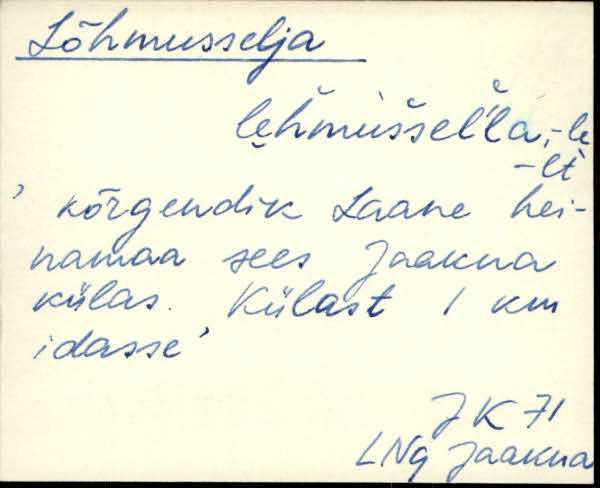 Lõhmusselja
le̮hmùššel'l'a, -le
-lt
' kõrgendik Laane hei-
namaa sees Jaakna
külas. Külast 1 km
idasse'
JK 71
LNg Jaakna